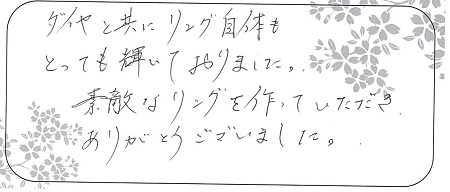 ダイヤと共にリング自体も
とっても輝いておりました。
素敵なリングを作っていただき
ありがとうございました。